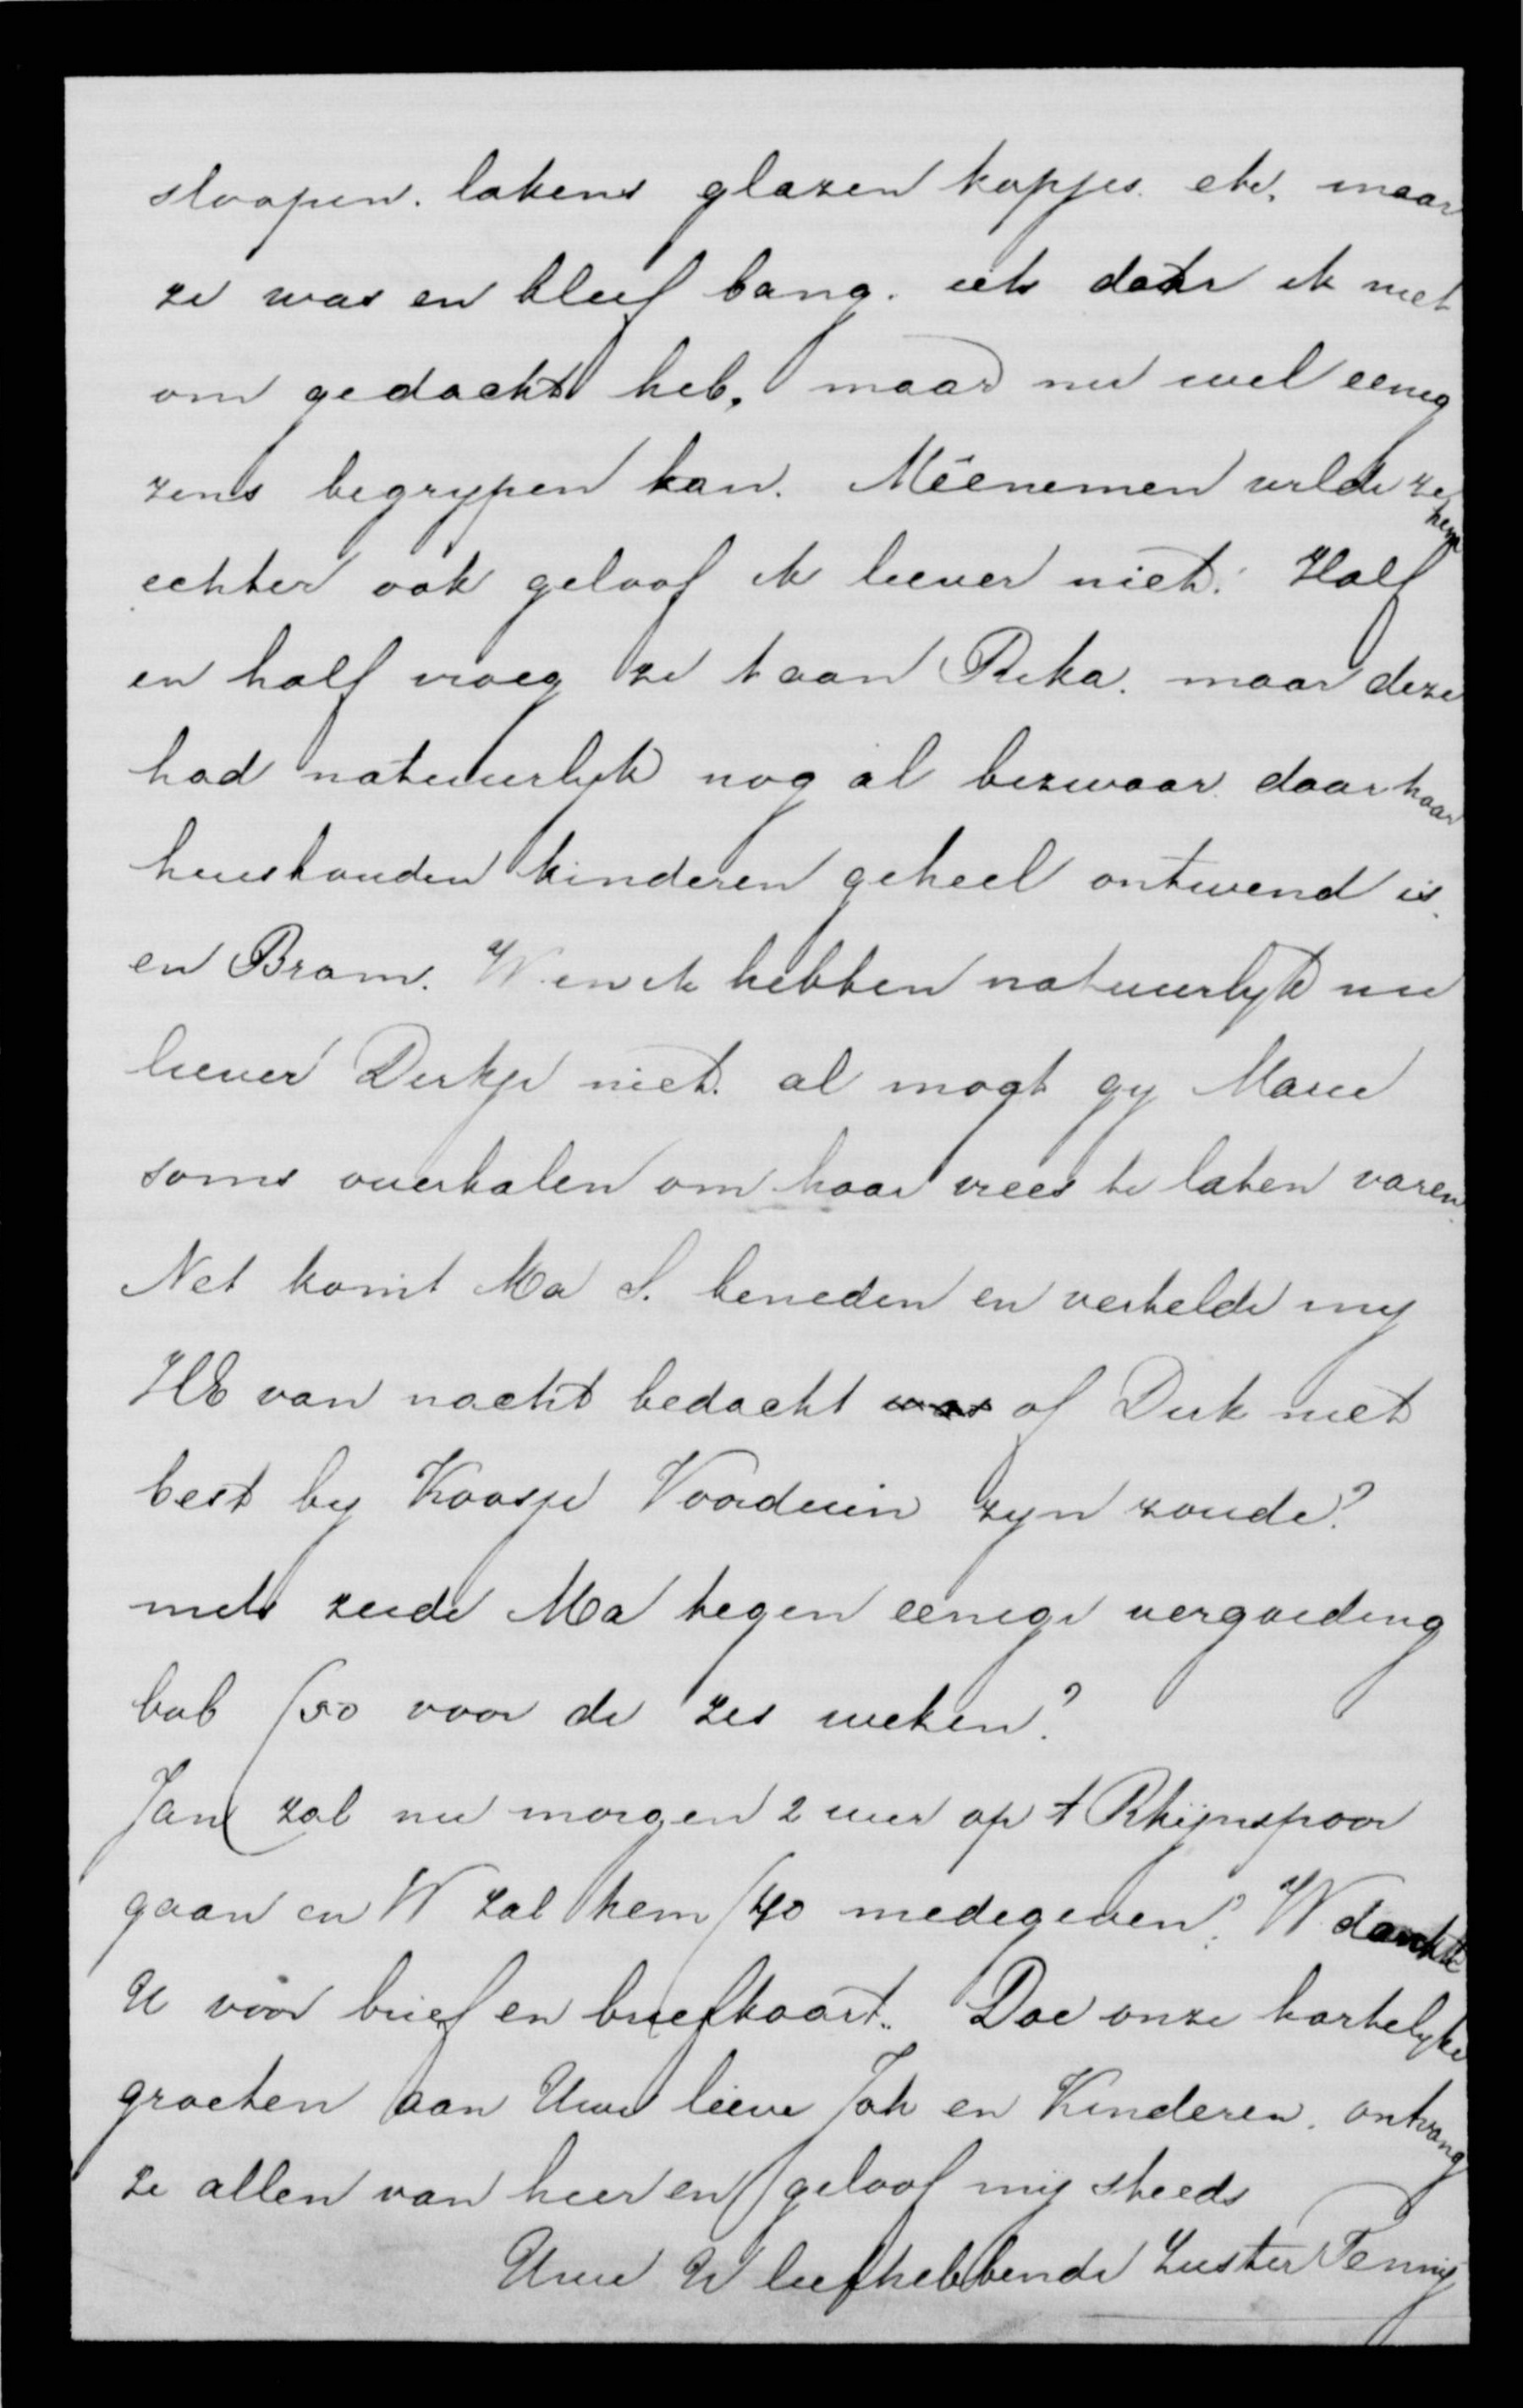 sloopen. lakens glazen kopjes. etc. maar
ze was en bleef bang. iets daar ik niet
om gedacht heb, maar nu wel eenig
zens begrypen kan. Mêenemen wilde ze hem
echter ook geloof ik liever niet. Half
en half vroeg ze 't aan Rika. maar deze
had natuurlyk nog al bezwaar. daar haar
huishouden kinderen geheel ontwend is.
en Bram. W en ik hebben natuurlyk nu
liever Dirkje niet. al mogt gy Marie
soms overhalen om haar vrees te laten varen.
Net komt Ma S. beneden en vertelde my
HE van nacht bedacht was of Dirk niet
best by Koosje Voorduin zyn zoude?
mits zeide Ma tegen eenige vergoeding
bvb f50 voor de zes weken?
Jan zal nu morgen 2 uur op 't Rhijnspoor
gaan en W zal hem f40 medegeven. W dankte
U voor brief en briefkaart. Doe onze hartelyke
groeten aan Uwe lieve Joh en Kinderen. ontvang
ze allen van hier en geloof mij steeds
Uwe U liefhebbende Zuster Fenny